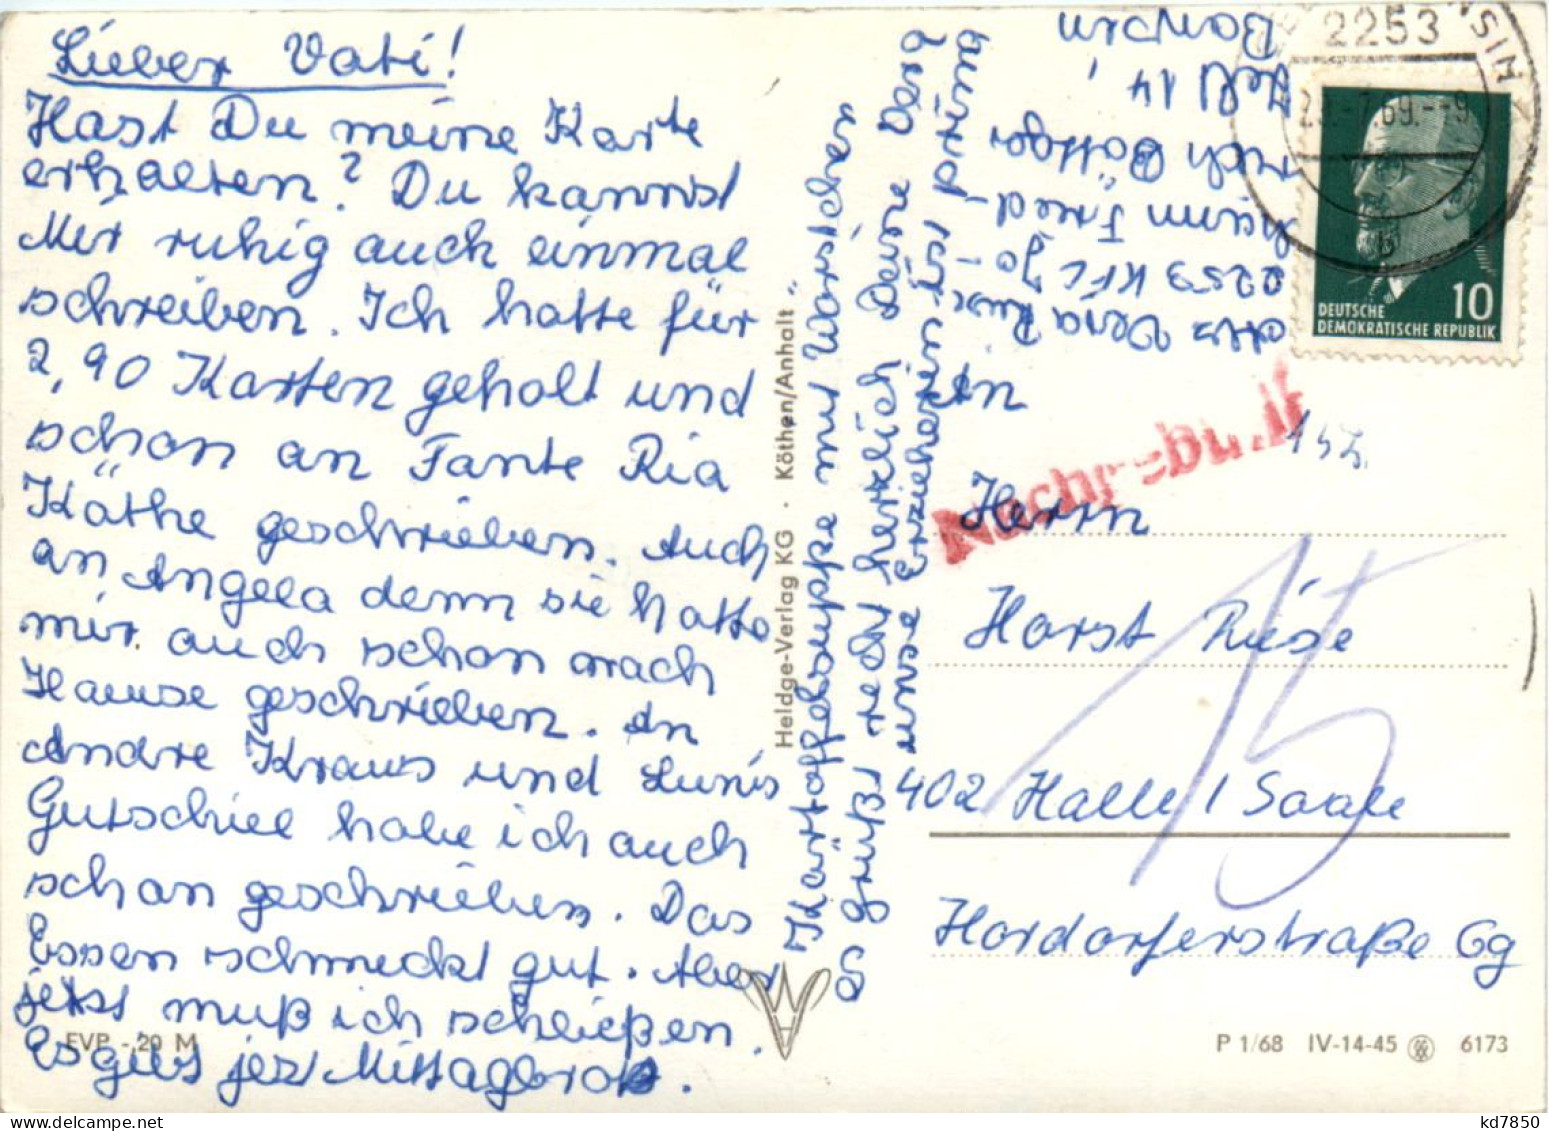 Lieber Vati!
Hast Du meine Karte
erhalten? Du kannst
Mir ruhig auch einmal
schreiben. Ich hatte für
2,90 Karten geholt und
schon an Tante Ria
Käthe geschrieben. Auch
an Angela denn sie hatte
mir auch schon nach
Hause geschrieben. An
Andre Kraus und
Gutschiel habe ich auch
schon geschrieben. Das
Essen schmeckt gut. Aber
jetzt muß ich schließen.
Es gibs jez Mittagbrot.
Kartoffelsuppe mit Würstchen
Es grüßt recht herzlich Deine Vera
unse Erzieherin ist prima
Abs Vera Riese
2253 KFL
heim Fried-
rich Böttger
Zell 14
Bansin
Heldge-Verlag KG · Köthen/Anhalt
EVP -,20 M
2253
NSIN
69.--9
DEUTSCHE
DEMOKRATISCHE REPUBLIK
10
Nachgebühr
15
An
Herrn
Horst Riese
402 Halle / Saale
Hordorferstraße 6g
P 1/68 IV-14-45 6173
kd7850